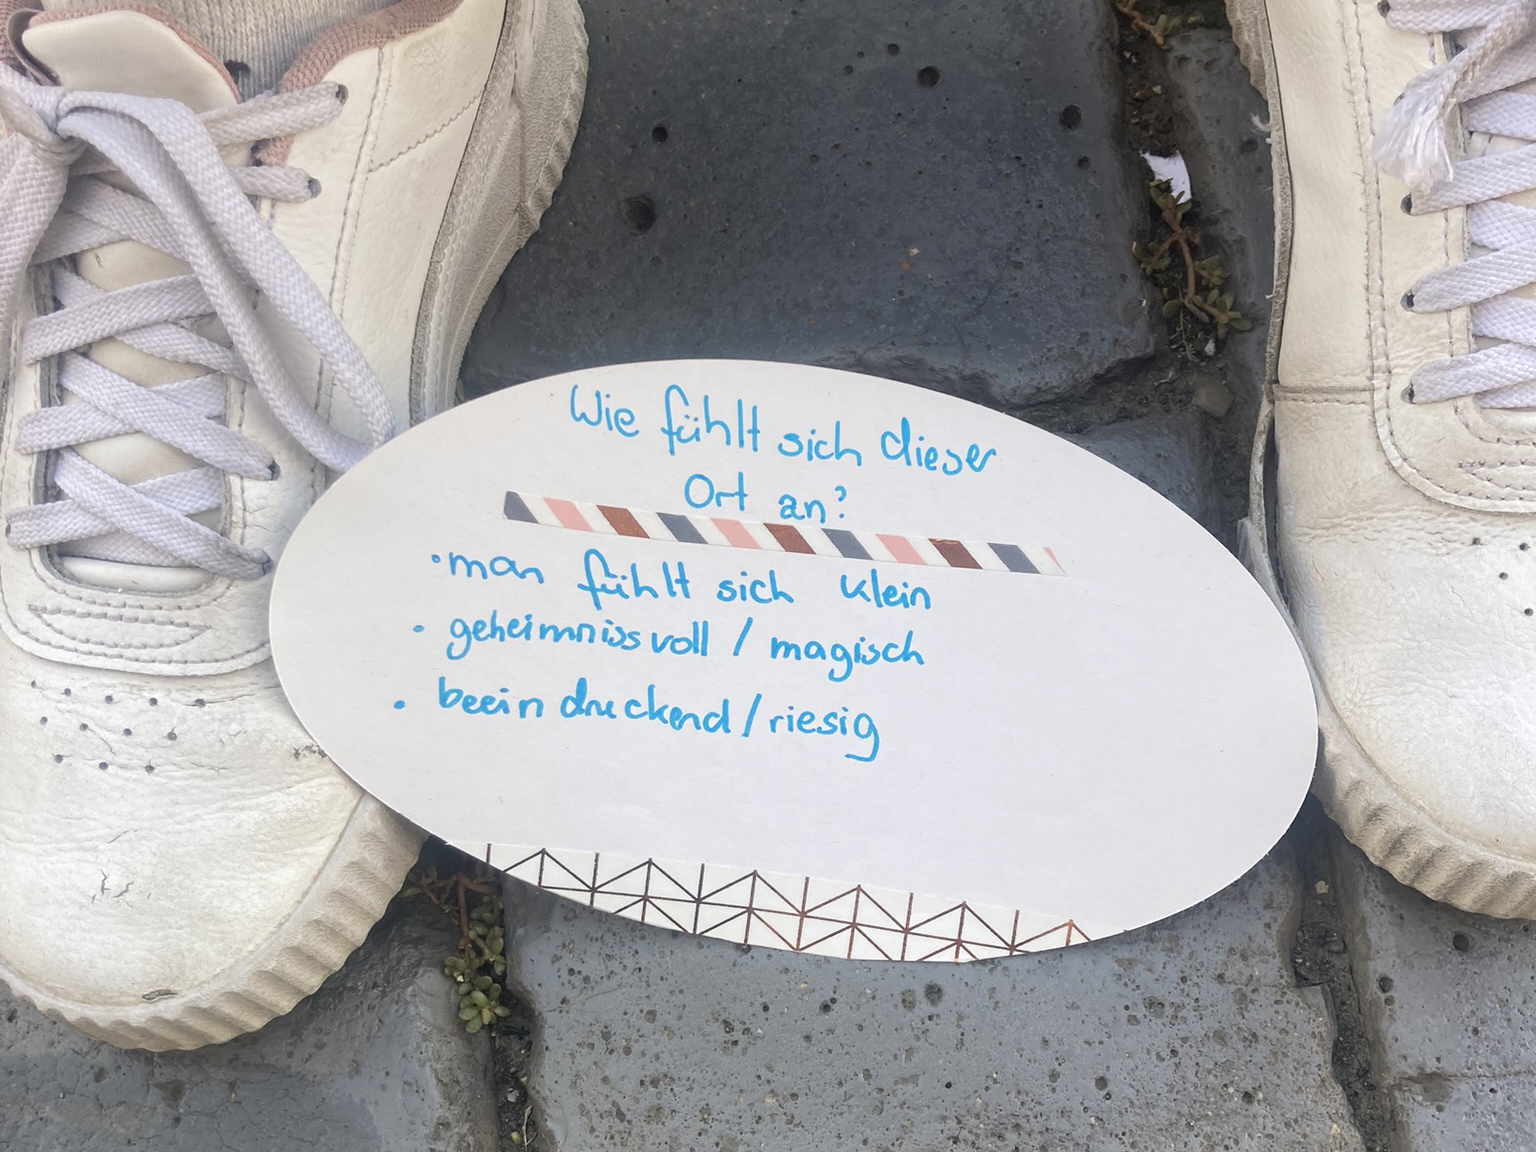 Wie fühlt sich dieser
Ort an?
· man fühlt sich klein
· geheimnissvoll / magisch
· beeindruckend / riesig